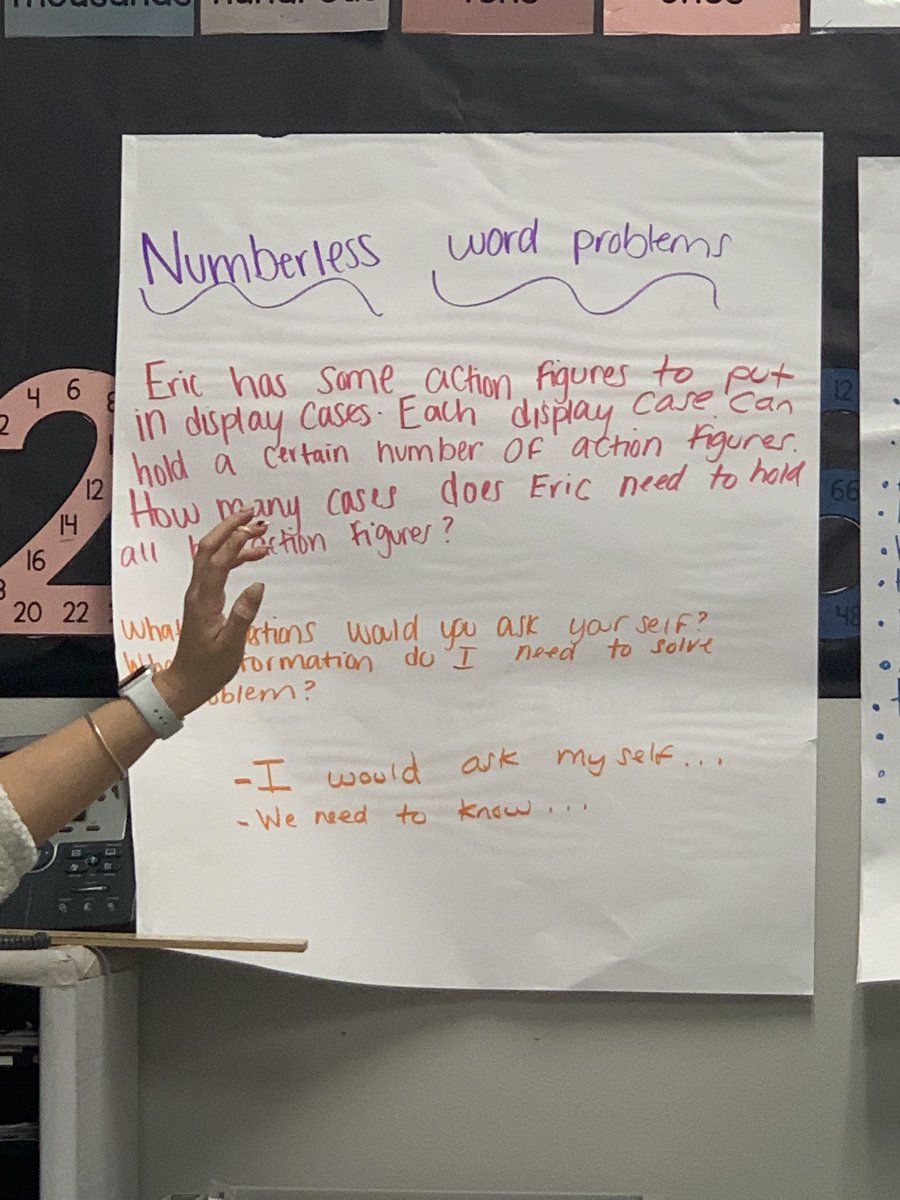 Numberless word problems
Eric has some action figures to put
in display cases. Each display case can
hold a certain number of action figures.
How many cases does Eric need to hold
all action figures?
What would you ask yourself?
do I need to solve
- I would ask myself...
- We need to know...
4 6 8
2
12
14
16
20 22
12
66
48